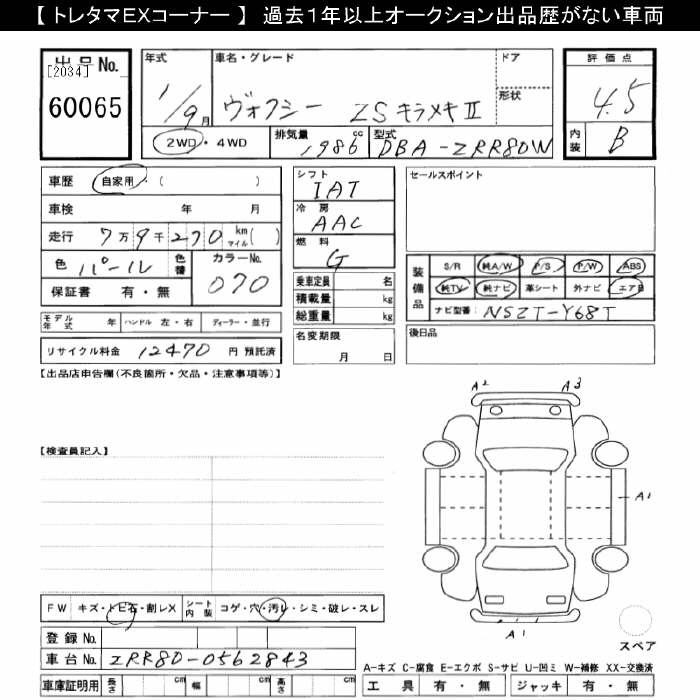 【 トレタマEXコーナー 】 過去1年以上オークション出品歴がない車両
出品No.
[2034]
60065
年式 車名・グレード ドア
1/9月 ヴォクシー ZS キラメキⅡ 形状
2WD・4WD 排気量 1986 cc 型式 DBA-ZRR80W
評価点
4.5
内装 B
車歴 自家用・( )
車検 年 月
走行 7万9千270 km マイル( )
色 パール 色替 カラーNo. 070
保証書 有・無
モデル年式 年 ハンドル 左・右 ディーラー・並行
リサイクル料金 12470 円 預託済
シフト IAT
冷房 AAC
燃料 G
乗車定員 名
積載量 kg
総重量 kg
名変期限
月 日
セールスポイント
装備品 S/R 純A/W P/S P/W ABS
純TV 純ナビ 革シート 外ナビ エアB
ナビ型番: NSZT-Y68T
後日品
【出品店申告欄(不良箇所・欠品・注意事項等)】
【検査員記入】
A2 A3
A1
A1
スペア
FW キズ・トビ石・割レX シート内装 コゲ・穴・汚レ・シミ・破レ・スレ
登録 No.
車台 No. ZRR80-0562843
車庫証明用 長さ cm 幅 cm 高さ cm
A-キズ C-腐食 E-エクボ S-サビ U-凹ミ W-補修 XX-交換済
工具 有・無 ジャッキ 有・無